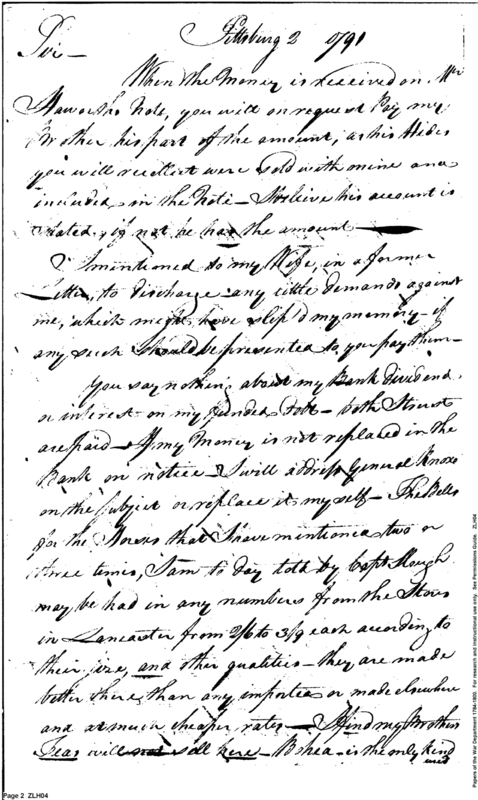 Pittsburg 2 1791
Sir —
When the Money is received on Mr
Haworths Note, you will on request Pay my
Brother his part of the amount, as his Hides
you will recollect were sold with mine and
included in the Note — I believe his account is
stated, if not he has the amount —
I mentioned to my Wife, in a former
Letter, to discharge any little demands against
me, which might have slip'd my memory — if
any such should be presented to you pay them —
You say nothing about my Bank dividend
or interest on my funded debt — both I trust
are paid — If my Money is not replaced in the
Bank on notice — I will address General Knox
on the subject or replace it myself — The Bells
for the Horses that I have mentioned two or
three times, I am to day told by Capt Slough
may be had in any numbers from the Stores
in Lancaster from 2/6 to 3/9 each according to
their size, and other qualities — they are made
better there, than any imported or made elsewhere
and at much cheaper rates — I find my Brothers
Teas will not sell here — Bohea is the only kind
used
Page 2 ZLH04
Papers of the War Department 1784-1800. For research and instructional use only. See Permissions Guide. ZLH04